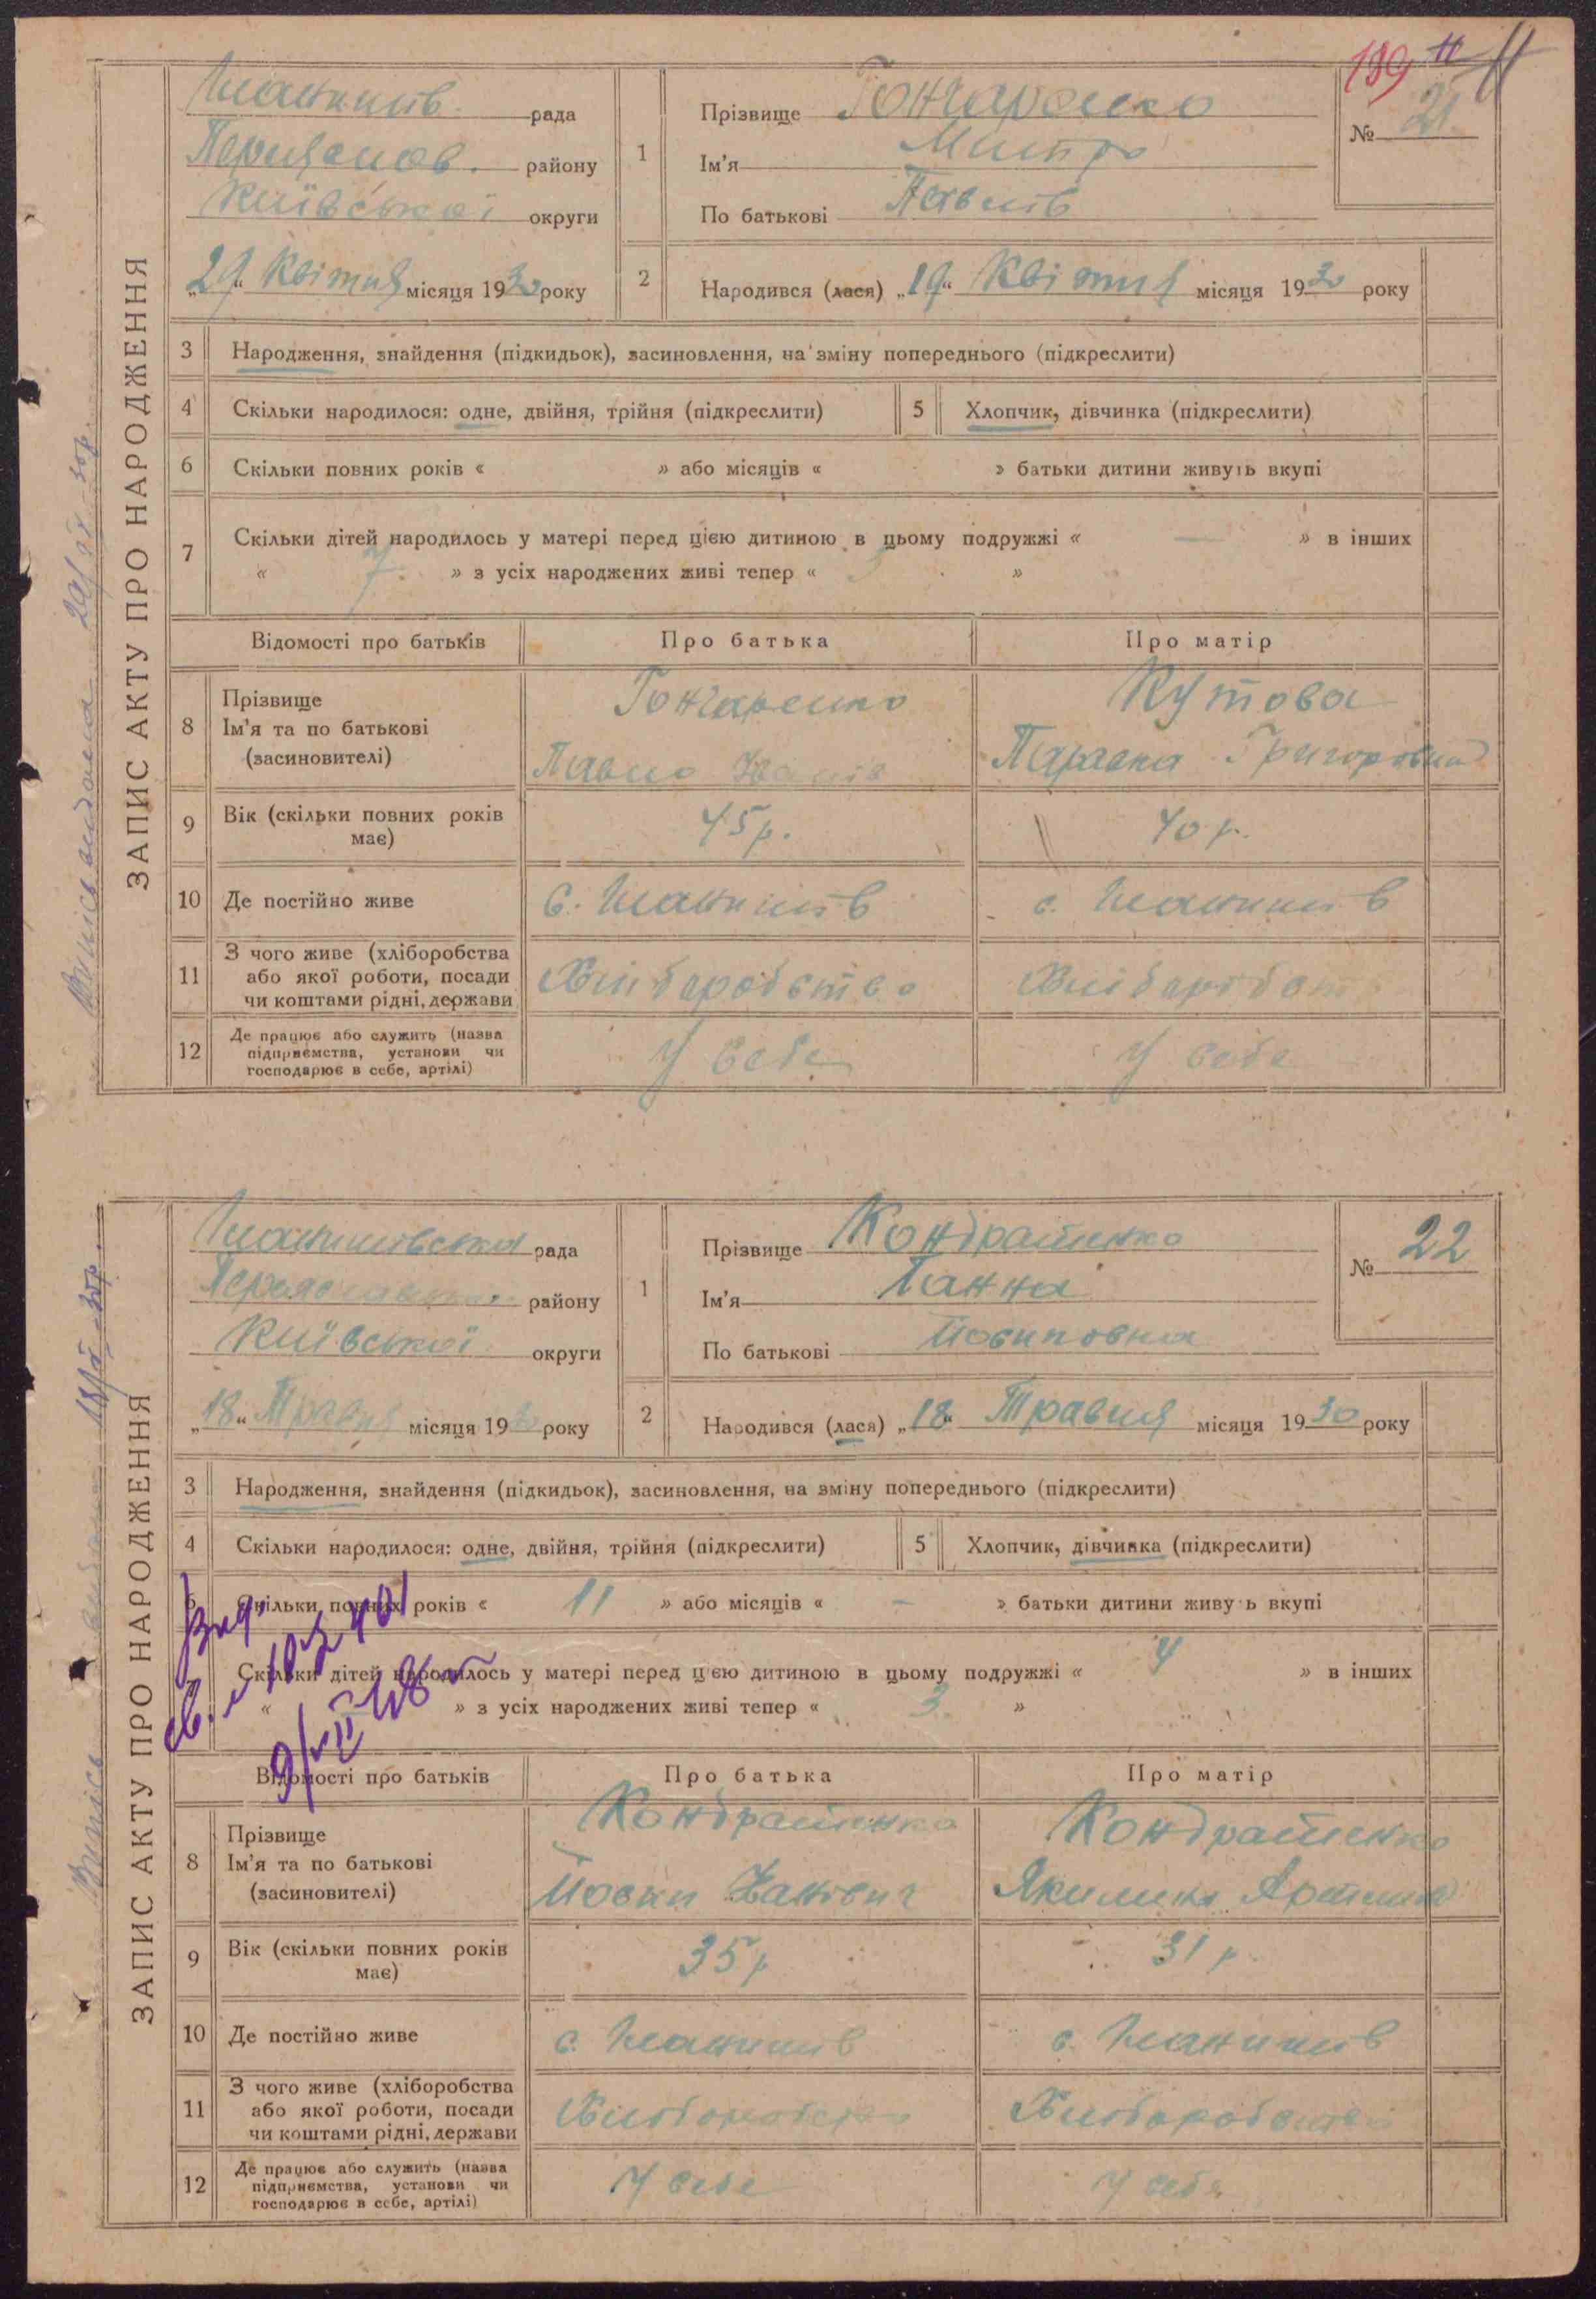 139 11
№ 21
ЗАПИС АКТУ ПРО НАРОДЖЕННЯ
рада
району
Київської округи
„29“ Квітня місяця 1930 року
1 Прізвище Гончаренко
Ім'я Митро
По батькові Павлів
2 Народився (лася) „19“ Квітня місяця 1930 року
3 Народження, знайдення (підкидьок), засиновлення, на зміну попереднього (підкреслити)
4 Скільки народилося: одне, двійня, трійня (підкреслити) 5 Хлопчик, дівчинка (підкреслити)
6 Скільки повних років « » або місяців « » батьки дитини живуть вкупі
7 Скільки дітей народилось у матері перед цією дитиною в цьому подружжі « — » в інших
« 7 » з усіх народжених живі тепер « »
Відомості про батьків Про батька Про матір
8 Прізвище
Ім'я та по батькові
(засиновителі)
Гончаренко
Павло Іванів
Кутова
Параска Григоровна
9 Вік (скільки повних років має) 45 р. 40 р.
10 Де постійно живе с. с.
11 З чого живе (хліборобства
або якої роботи, посади
чи коштами рідні, держави
Хліборобство
12 Де працює або служить (назва
підприємства, установи чи
господарює в себе, артілі)
У себе У себе
№ 22
ЗАПИС АКТУ ПРО НАРОДЖЕННЯ
рада
району
Київської округи
„18“ Травня місяця 1930 року
1 Прізвище Кондратенко
Ім'я Ганна
По батькові Йосиповна
2 Народився (лася) „18“ Травня місяця 1930 року
3 Народження, знайдення (підкидьок), засиновлення, на зміну попереднього (підкреслити)
4 Скільки народилося: одне, двійня, трійня (підкреслити) 5 Хлопчик, дівчинка (підкреслити)
6 Скільки повних років « 11 » або місяців « - » батьки дитини живуть вкупі
Скільки дітей народилось у матері перед цією дитиною в цьому подружжі « 4 » в інших
« » з усіх народжених живі тепер « 3 »
Відомості про батьків Про батька Про матір
8 Прізвище
Ім'я та по батькові
(засиновителі)
Кондратенко
Йосип Іванович
Кондратенко
Якилина
9 Вік (скільки повних років має) 35 р 31 р.
10 Де постійно живе с. с.
11 З чого живе (хліборобства
або якої роботи, посади
чи коштами рідні, держави
Хліборобство Хліборобство
12 Де працює або служить (назва
підприємства, установи чи
господарює в себе, артілі)
У себе У себе